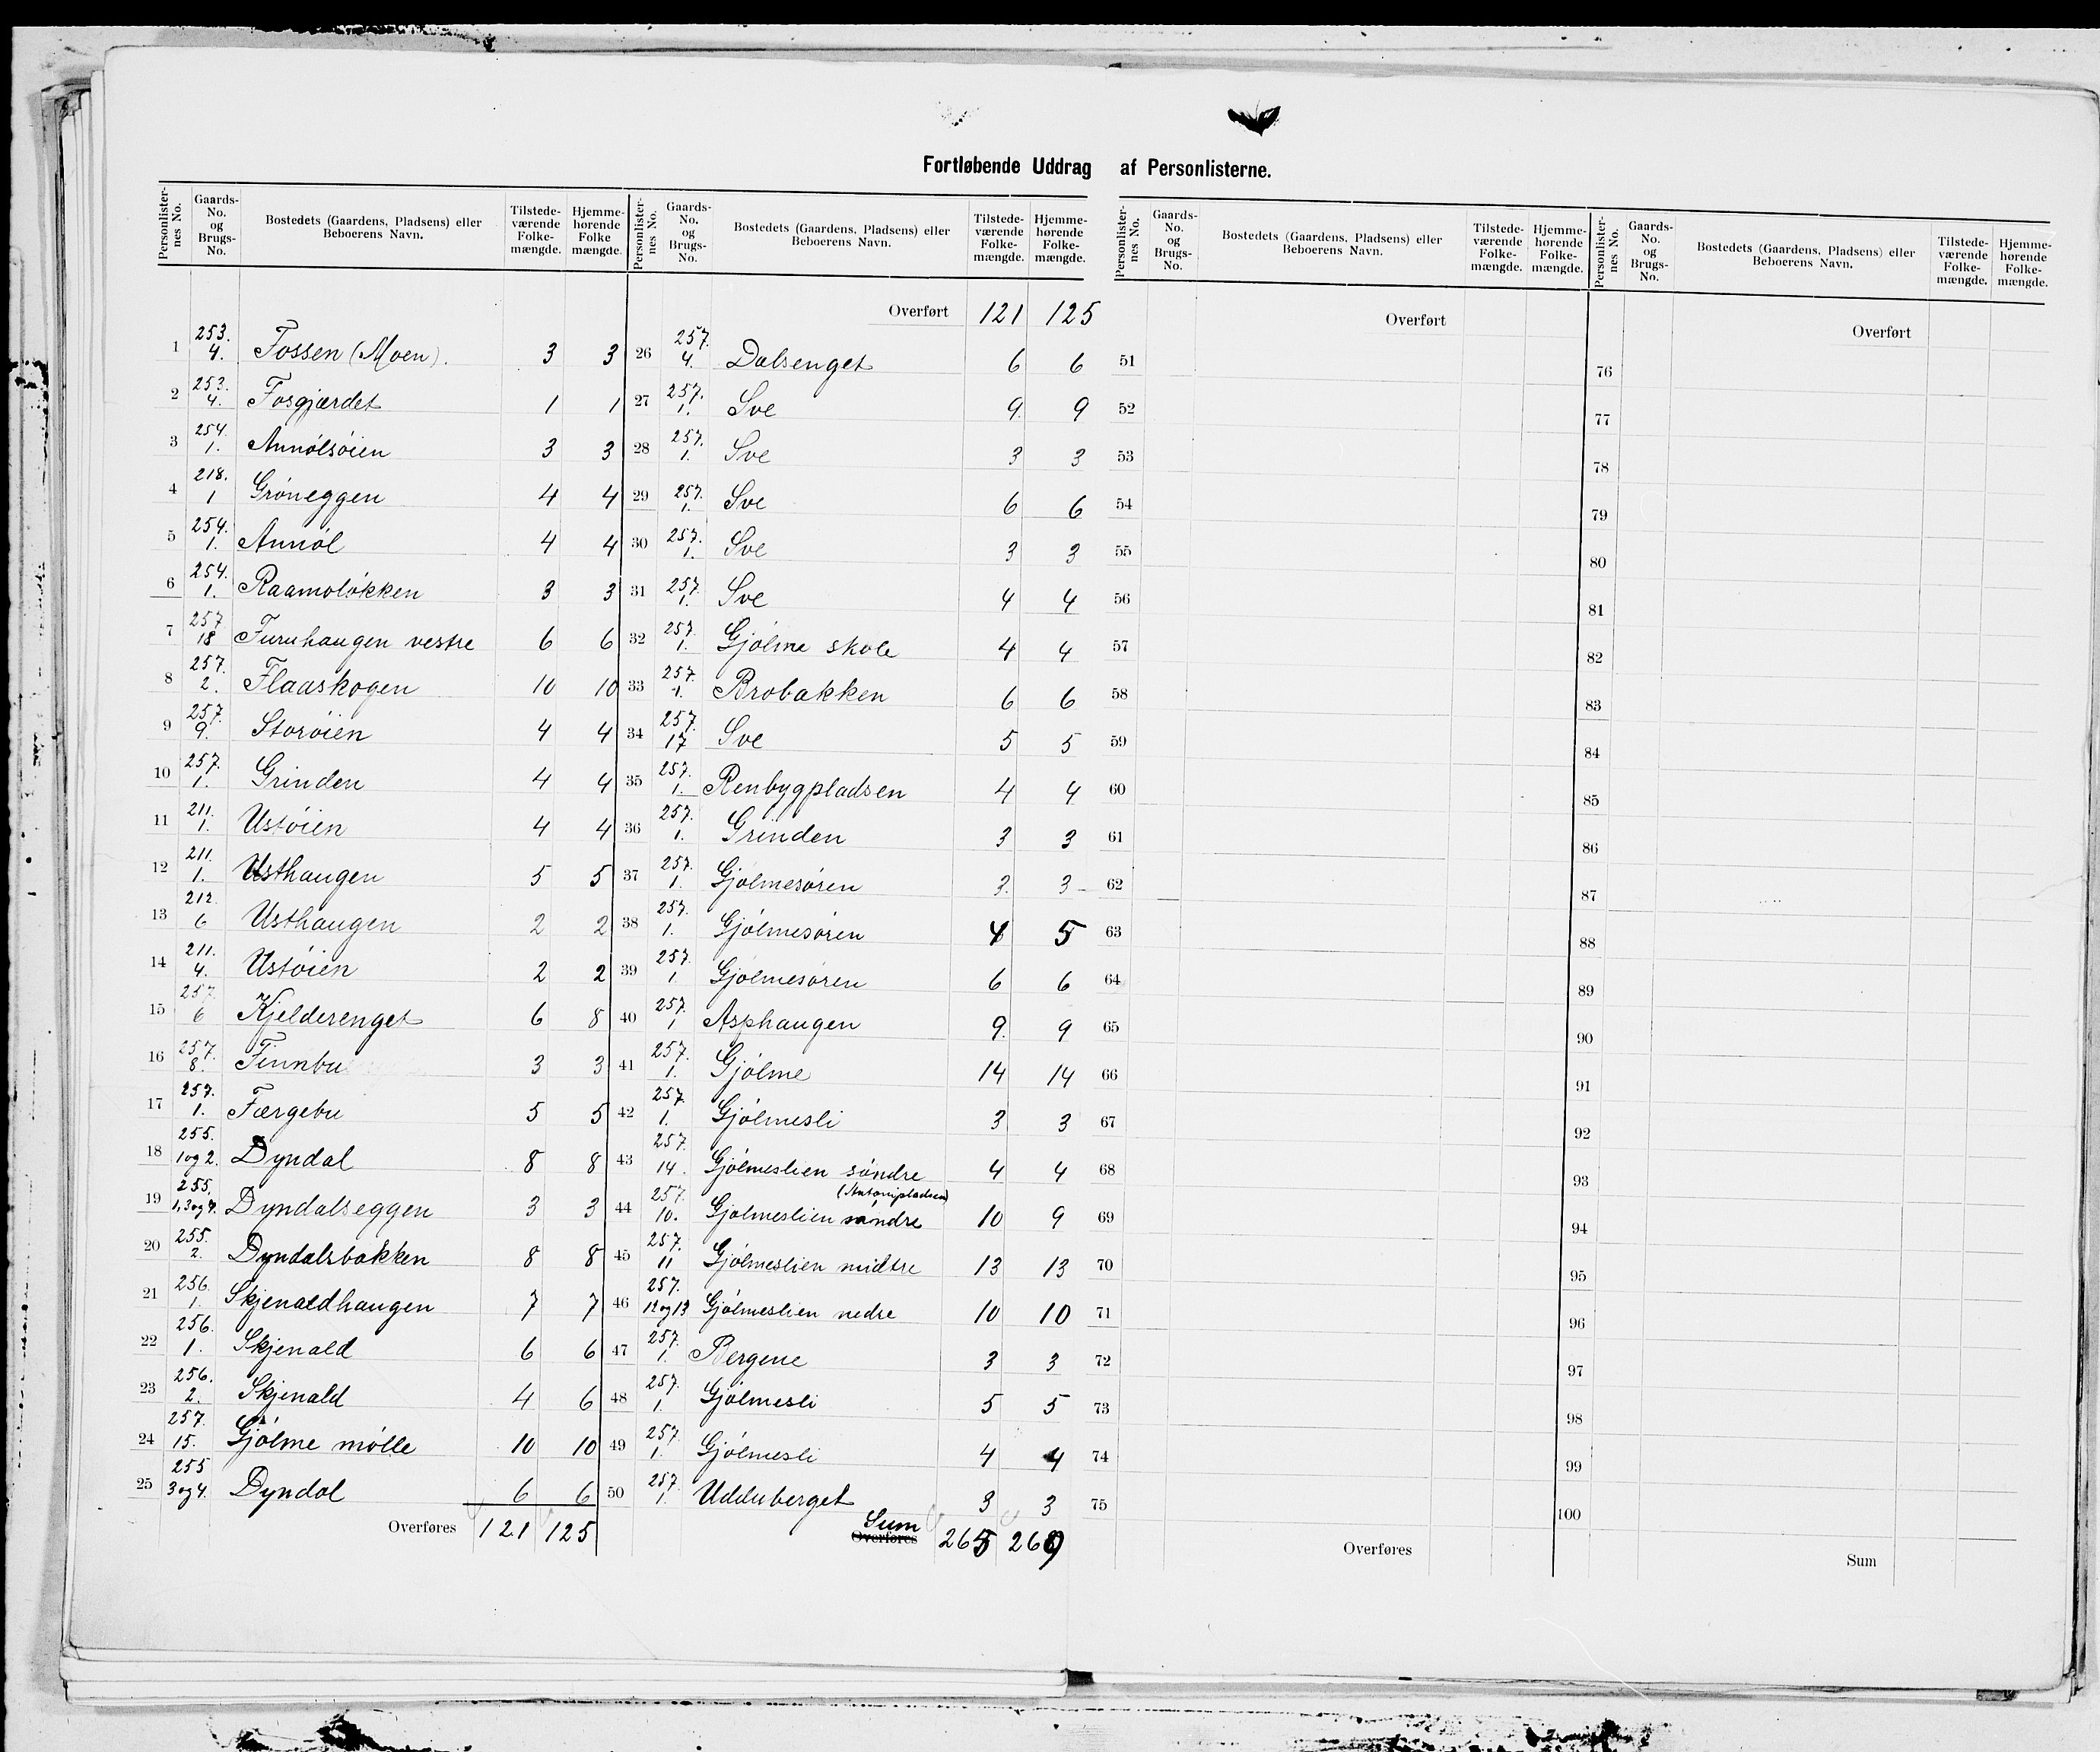 Fortløbende Uddrag af Personlisterne.
Personlister-nes No. | Gaards-No. og Brugs-No. | Bostedets (Gaardens, Pladsens) eller Beboerens Navn. | Tilstede-værende Folke-mængde. | Hjemme-hørende Folke mængde.
1 | 253. 4. | Fossen (Moen). | 3 | 3
2 | 253. 4. | Fosgjærdet | 1 | 1
3 | 254. 1. | Annólsóien | 3 | 3
4 | 218. 1 | Gróneggen | 4 | 4
5 | 254. 1. | Annól | 4 | 4
6 | 254. 1. | Raamolókken | 3 | 3
7 | 257 18 | Furuhaugen vestre | 6 | 6
8 | 257. 2. | Flaaskogen | 10 | 10
9 | 257. 9. | Storóien | 4 | 4
10 | 257. 1. | Grinden | 4 | 4
11 | 211. 1. | Ustóien | 4 | 4
12 | 211. 1. | Usthaugen | 5 | 5
13 | 212. 6 | Usthaugen | 2 | 2
14 | 211. 4. | Ustóien | 2 | 2
15 | 257. 6 | Kjelderenget | 6 | 8
16 | 257. 8. | Finnbu | 3 | 3
17 | 257. 1. | Færgebu | 5 | 5
18 | 255. 1og2. | Dyndal | 8 | 8
19 | 255. 1,3og4. | Dyndalseggen | 3 | 3
20 | 255. 2. | Dyndalsbakken | 8 | 8
21 | 256. 1. | Skjenaldhaugen | 7 | 7
22 | 256. 1. | Skjenald | 6 | 6
23 | 256. 2. | Skjenald | 4 | 6
24 | 257. 15. | Gjólme mólle | 10 | 10
25 | 255 3og4. | Dyndal | 6 | 6
Overføres | 121 | 125
Personlister-nes No. | Gaards-No. og Brugs-No. | Bostedets (Gaardens, Pladsens) eller Beboerens Navn. | Tilstede-værende Folke-mængde. | Hjemme-hørende Folke-mængde.
Overført | 121 | 125
26 | 257. 4. | Dalsenget | 6 | 6
27 | 257. 1. | Sve | 9. | 9
28 | 257. 1. | Sve | 3 | 3
29 | 257. 1. | Sve | 6 | 6
30 | 257. 1. | Sve | 3 | 3
31 | 257. 1. | Sve | 4 | 4
32 | 257. 1. | Gjólme skole | 4 | 4
33 | 257. 1. | Brobakken | 6 | 6
34 | 257. 17 | Sve | 5 | 5
35 | 257. 1. | Renbygpladsen | 4 | 4
36 | 257. 1. | Grinden | 3 | 3
37 | 257. 1. | Gjólmesóren | 3. | 3
38 | 257. 1. | Gjólmesóren | 4 | 5
39 | 257. 1. | Gjólmesóren | 6 | 6
40 | 257. 1 | Asphaugen | 9. | 9
41 | 257. 1. | Gjólme | 14 | 14
42 | 257. 1. | Gjólmesli | 3 | 3
43 | 257. 14. | Gjólmeslien sóndre | 4 | 4
(Antonipladsen)
44 | 257. 10. | Gjólmeslien sóndre | 10 | 9
45 | 257. 11 | Gjólmeslien midtre | 13 | 13
46 | 257. 12og13 | Gjólmeslien nedre | 10 | 10
47 | 257. 1. | Bergene | 3 | 3
48 | 257. 1. | Gjólmesli | 5 | 5
49 | 257. 1. | Gjólmesli | 4 | 4
50 | 257. 1. | Udduberget | 3 | 3
Sum
Overføres | 265 | 269
Personlister-nes No. | Gaards-No. og Brugs-No. | Bostedets (Gaardens, Pladsens) eller Beboerens Navn. | Tilstede-værende Folke-mængde. | Hjemme-hørende Folke-mængde.
Overført
51
52
53
54
55
56
57
58
59
60
61
62
63
64
65
66
67
68
69
70
71
72
73
74
75
Overføres
Personlister-nes No. | Gaards-No. og Brugs-No. | Bostedets (Gaardens, Pladsens) eller Beboerens Navn. | Tilstede-værende Folke-mængde. | Hjemme-hørende Folke-mængde.
Overført
76
77
78
79
80
81
82
83
84
85
86
87
88
89
90
91
92
93
94
95
96
97
98
99
100
Sum